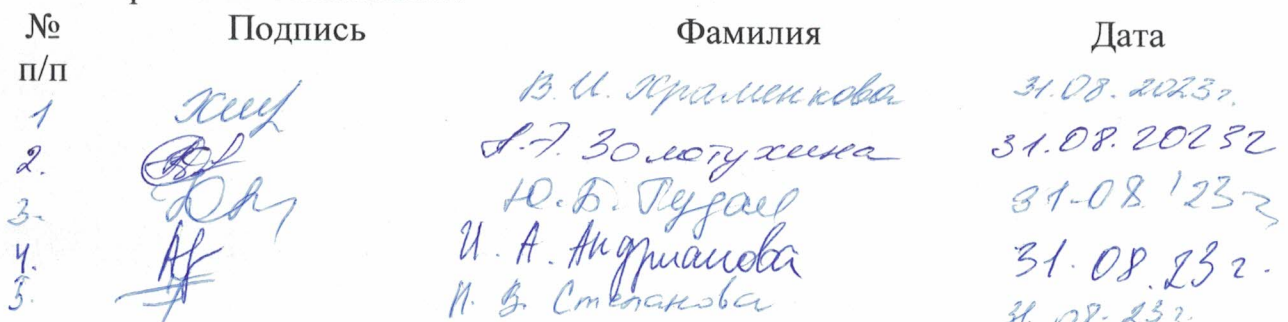 № Подпись Фамилия Дата
п/п
1 В.И. Храменкова 31.08.2023г.
2. Золотухина 31.08.2023г
3. Ю.Б. 31.08.'23г
4. И.А. Андрианова 31.08.23г.
5. Степанова 31.08.23г.